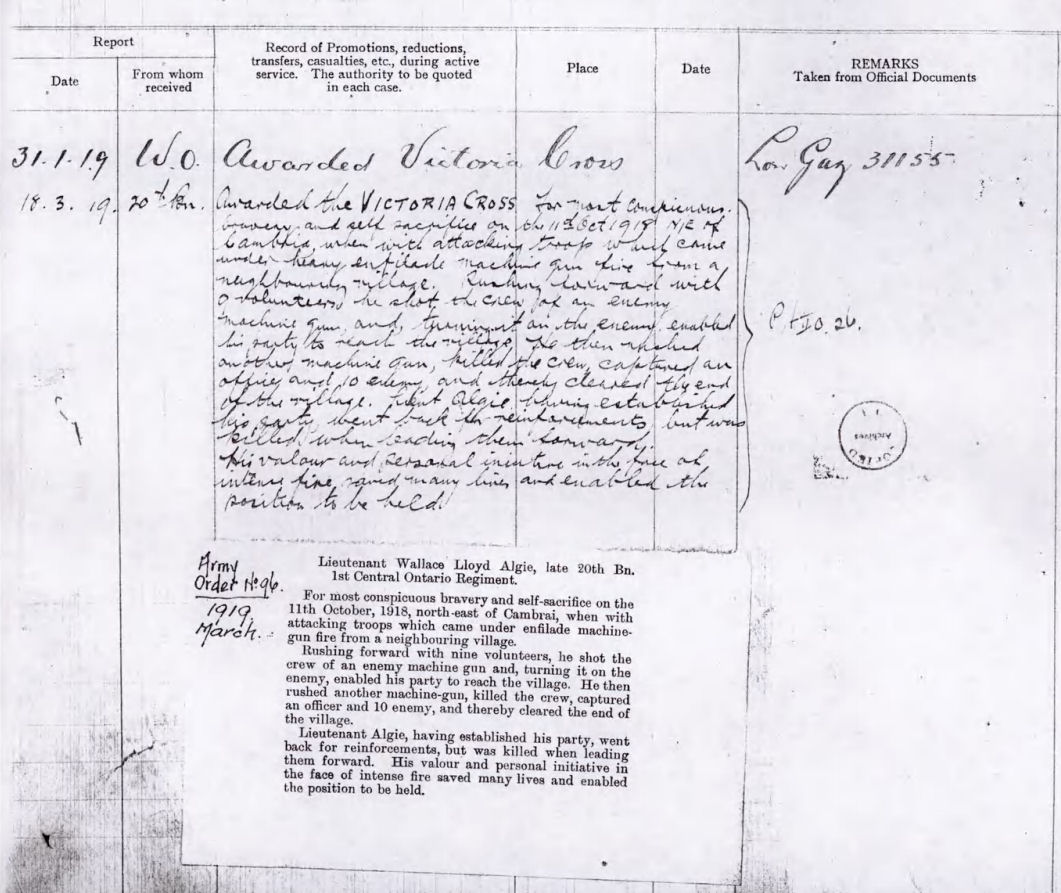 Report
Date
From whom
received
Record of Promotions, reductions,
transfers, casualties, etc., during active
service. The authority to be quoted
in each case.
Place
Date
REMARKS
Taken from Official Documents
31.1.19 W.O. Awarded Victoria Cross Lon Gaz 31155
18.3.19. 20th Bn. Awarded the VICTORIA CROSS For most conspicuous
bravery and self sacrifice on the 11th Oct 1918 N.E. of
Cambrai, when with attacking troops which came
under heavy enfilade machine gun fire from a
neighbouring village. Rushing forward with
9 volunteers, he shot the crew of an enemy
machine gun, and, turning it on the enemy, enabled
his party to reach the village. He then rushed
another machine gun, killed the crew, captured an
officer and 10 enemy, and thereby cleared the end
of the village. Lieut Algie having established
his party, went back for reinforcements, but was
killed when leading them forward.
His valour and personal initiative in the face of
intense fire, saved many lives and enabled the
position to be held.
26.
Archives
Army
Order No 96
1919
March.
Lieutenant Wallace Lloyd Algie, late 20th Bn.
1st Central Ontario Regiment.
For most conspicuous bravery and self-sacrifice on the
11th October, 1918, north-east of Cambrai, when with
attacking troops which came under enfilade machine-
gun fire from a neighbouring village.
Rushing forward with nine volunteers, he shot the
crew of an enemy machine gun and, turning it on the
enemy, enabled his party to reach the village. He then
rushed another machine-gun, killed the crew, captured
an officer and 10 enemy, and thereby cleared the end of
the village.
Lieutenant Algie, having established his party, went
back for reinforcements, but was killed when leading
them forward. His valour and personal initiative in
the face of intense fire saved many lives and enabled
the position to be held.